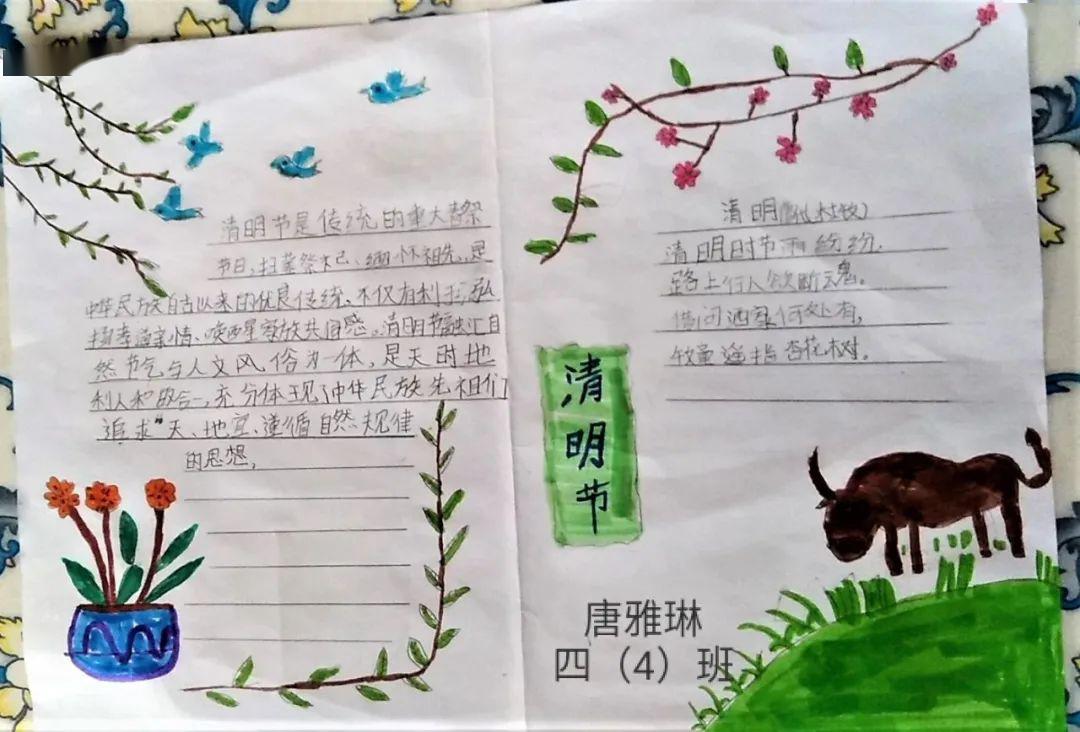 清明节是传统的重大春祭
节日,扫墓祭祀、缅怀祖先、是
中华民族自古以来的优良传统、不仅有利于弘
扬孝道亲情、唤醒家族共同
感。清明节融汇自
然节气与人文风俗为一体,是天时地
利人和的合一,充分体现了中华民族先祖们
追求“天、地、遵循自然规律
的思想,
清明
清明时节雨纷纷.
路上行人欲断魂。
借问酒家何处有,
牧童遥指杏花树.
清明节
唐雅琳
四（4）班